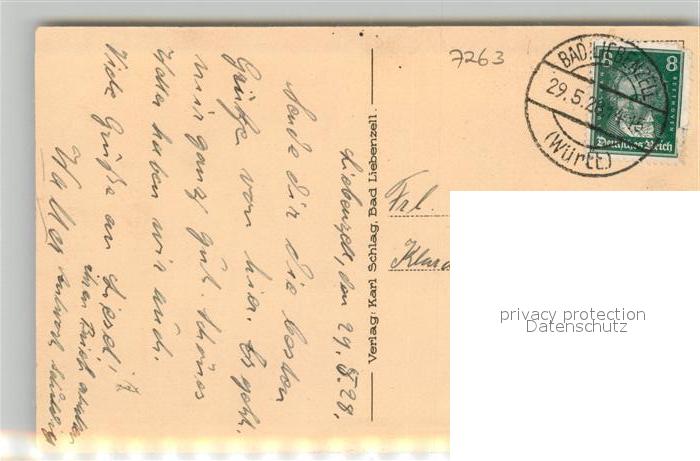 7263
BAD LIEBENZELL
29.5.28
(Württ.)
8
Deutsches Reich
Liebenzell, den 29. 5. 28.
Sende dir die besten
Grüße von hier. Es geht
mir ganz gut. Schönes
Wetter haben wir auch.
Viele Grüße an Liesel!
Frl.
Klara
Verlag: Karl Schlag, Bad Liebenzell.
privacy protection
Datenschutz